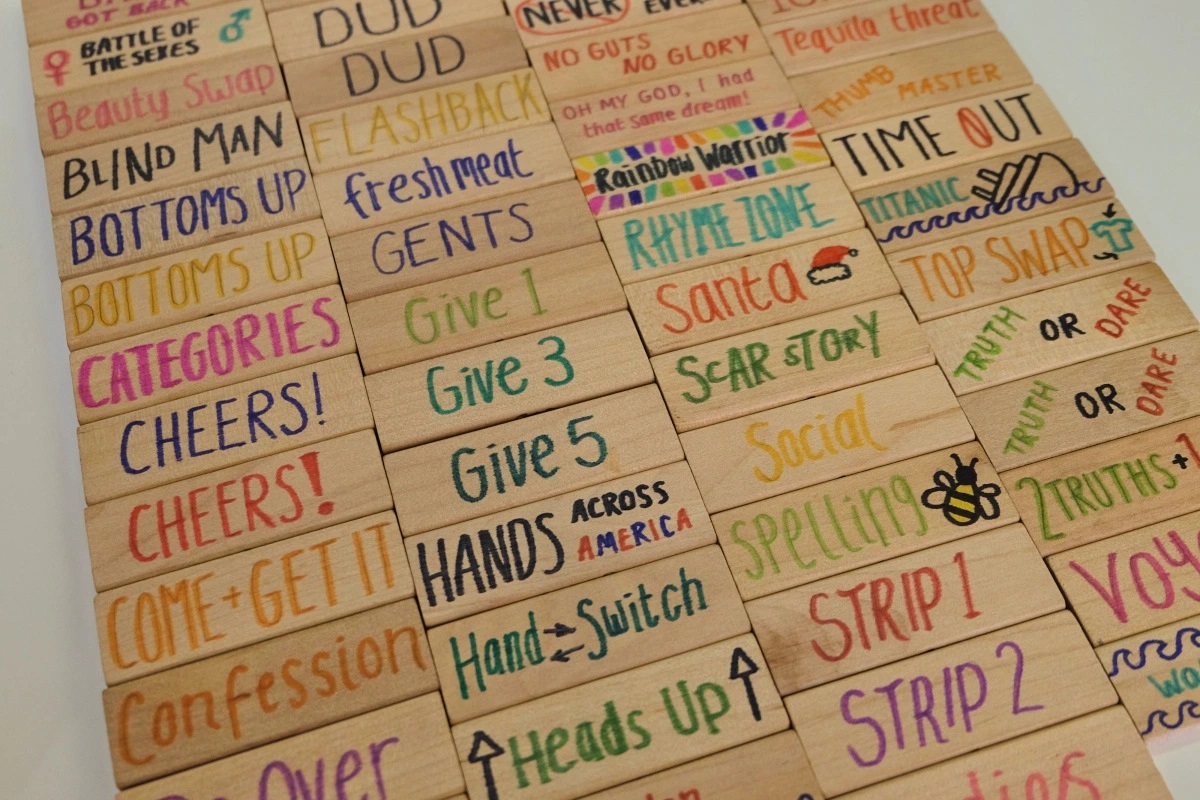 GOT BACK
BATTLE OF
THE SEXES
Beauty Swap
BLIND MAN
BOTTOMS UP
BOTTOMS UP
CATEGORIES
CHEERS!
CHEERS!
COME + GET IT
Confession
Over
DUD
DUD
FLASHBACK
fresh meat
GENTS
Give 1
Give 3
Give 5
HANDS ACROSS
AMERICA
Hand Switch
Heads Up
NEVER
EVER
NO GUTS
NO GLORY
OH MY GOD, I had
that same dream!
Rainbow Warrior
RHYME ZONE
Santa
SCAR STORY
Social
Spelling
STRIP 1
STRIP 2
Tequila threat
THUMB MASTER
TIME OUT
TITANIC
TOP SWAP
TRUTH OR DARE
TRUTH OR DARE
2 TRUTHS +